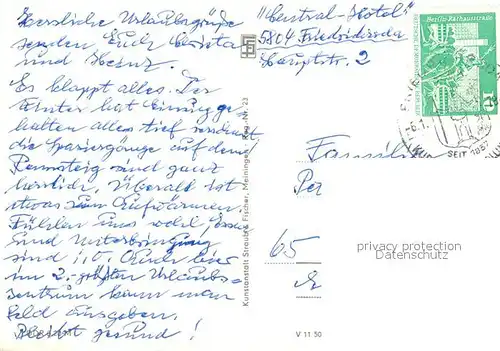 Herzliche Urlaubsgrüße
senden Euch Christa
und Heinz.
Es klappt alles. Der
Winter hat Einzug ge-
halten alles tief verschneit
die Spaziergänge auf dem
Rennsteig sind ganz
herrlich. Überall ist
etwas zum Aufwärmen.
Fühlen uns wohl, Essen
und Unterbringung
sind i.O. Auch hier
im 2.-größten Urlaubs-
zentrum kann man
Geld ausgeben.
Bleibt gesund!
"Central-Hotel"
5804 Friedrichroda
Hauptstr. 2
Berlin, Rathausstraße
10
SEIT 1837
Familie
Per
65
privacy protection
Datenschutz
Kunstanstalt Straub & Fischer, Meiningen
23
V 11 50